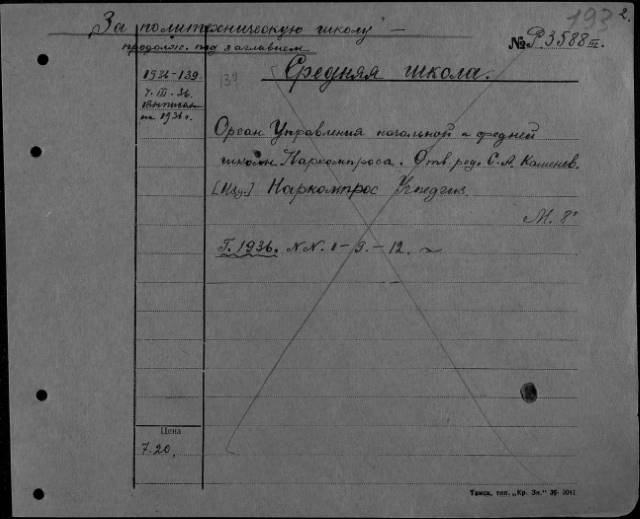 193 2.
„За политехническую школу" —
продолж. под заглавием
№ Р.3588 III.
1936-139
139
Средняя школа.
7. III - 36.
на 1936 г.
Орган Управления начальной и средней
школы Наркомпроса. Отв. ред. С. А. Каменев.
[Изд.] Наркомпрос Учпедгиз.
М. 8°
Г. 1936. NN. 1 - 9. - 12.
Цена
7.20.
Тамск, тип. „Кр. Зн."